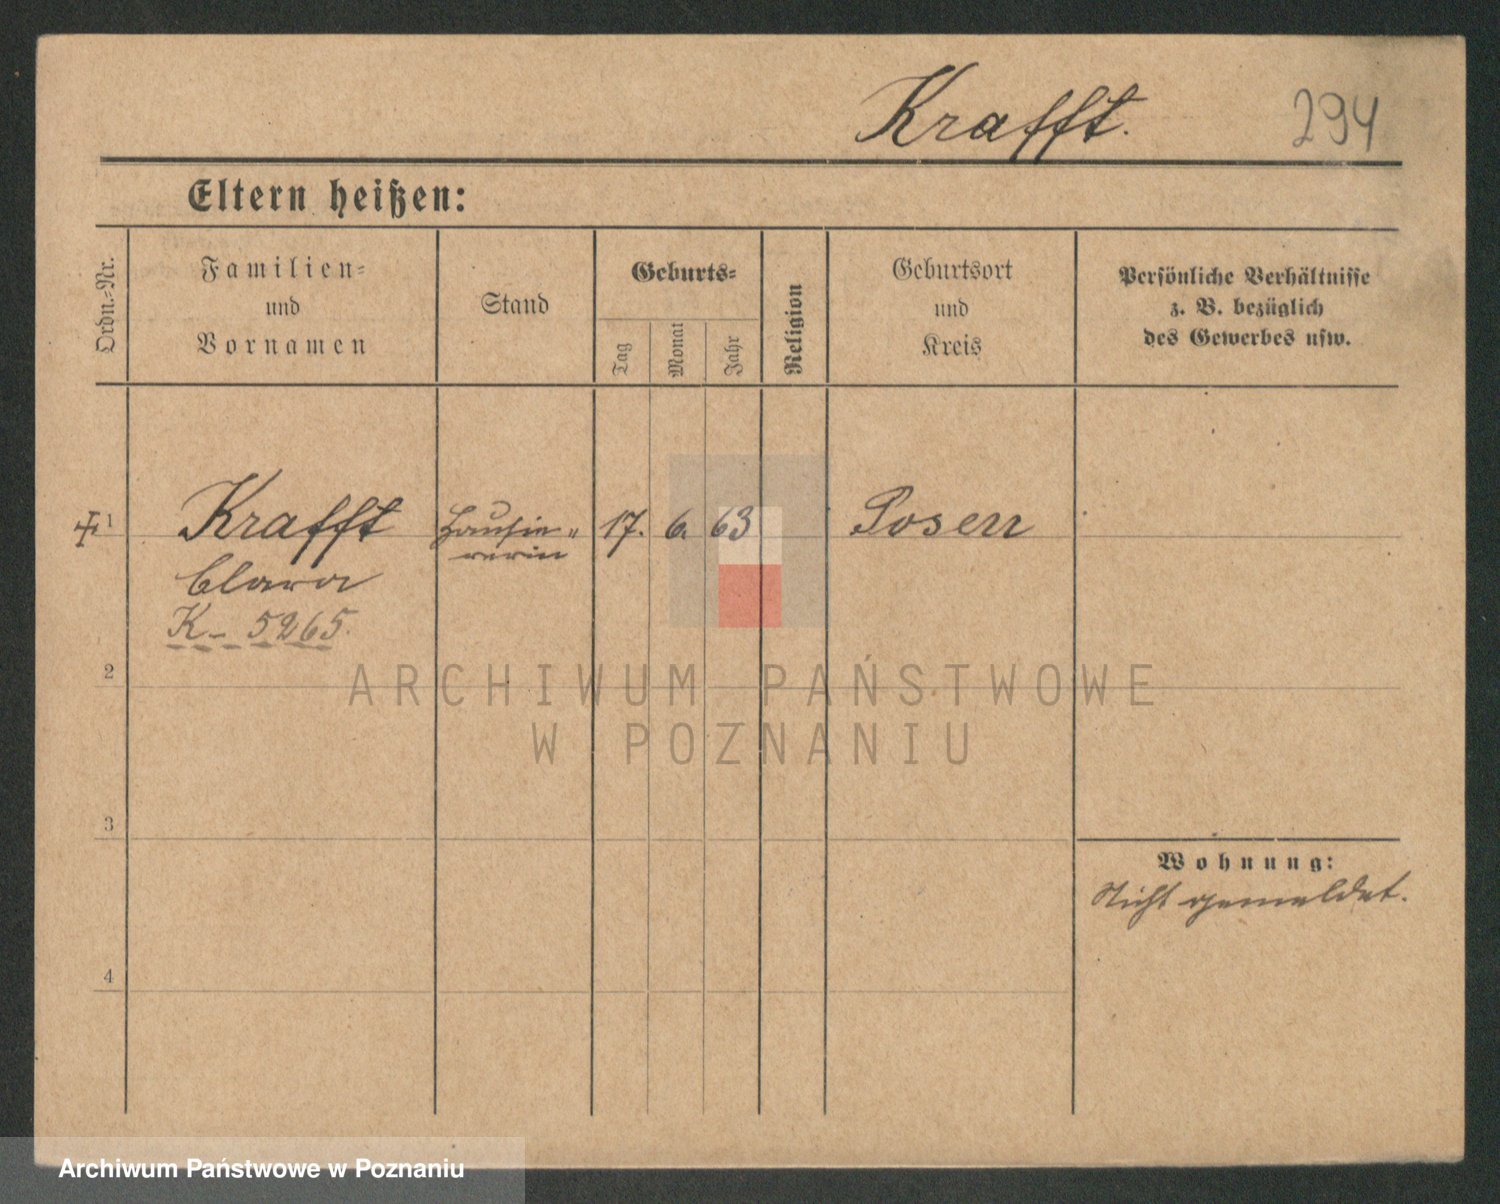 Krafft.
294
Eltern heißen:
Ordn.-Nr.
Familien-
und
Vornamen
Stand
Geburts-
Tag
Monat
Jahr
Religion
Geburtsort
und
Kreis
Persönliche Verhältnisse
z. B. bezüglich
des Gewerbes usw.
1 Krafft Hausie- 17. 6. 63 Posen
rerin
Clara
K - 5265.
2
ARCHIWUM PAŃSTWOWE
W POZNANIU
3
Wohnung:
Nicht gemeldet.
4
Archiwum Państwowe w Poznaniu